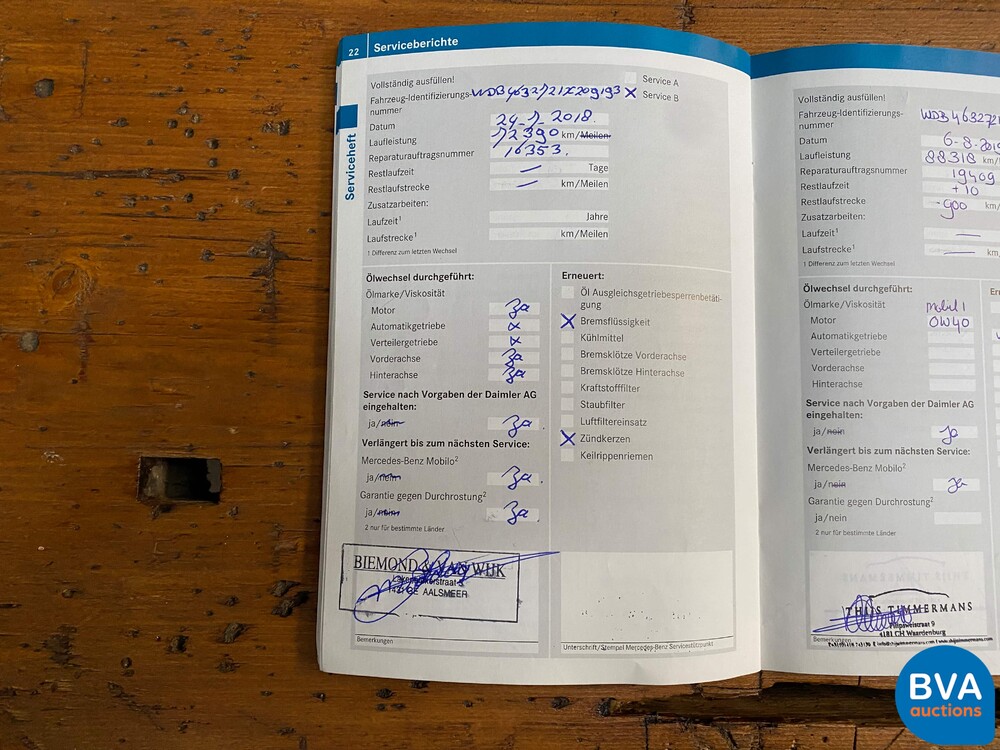 22 Serviceberichte
Serviceheft
Vollständig ausfüllen!
Service A
Fahrzeug-Identifizierungs-nummer WDB4632721X209193
X Service B
Datum 24-1-2018
Laufleistung 72390 km/Meilen
Reparaturauftragsnummer 16353.
Restlaufzeit — Tage
Restlaufstrecke — km/Meilen
Zusatzarbeiten:
Laufzeit¹ Jahre
Laufstrecke¹ km/Meilen
1 Differenz zum letzten Wechsel
Ölwechsel durchgeführt:
Ölmarke/Viskosität
Motor Ja
Automatikgetriebe
Verteilergetriebe
Vorderachse Ja
Hinterachse Ja
Service nach Vorgaben der Daimler AG
eingehalten:
ja/nein Ja
Verlängert bis zum nächsten Service:
Mercedes-Benz Mobilo²
ja/nein Ja
Garantie gegen Durchrostung²
ja/nein Ja
2 nur für bestimmte Länder
BIEMOND & VAN WIJK
AALSMEER
Bemerkungen
Erneuert:
Öl Ausgleichsgetriebesperrenbetäti-
gung
X Bremsflüssigkeit
Kühlmittel
Bremsklötze Vorderachse
Bremsklötze Hinterachse
Kraftstofffilter
Staubfilter
Luftfiltereinsatz
X Zündkerzen
Keilrippenriemen
Unterschrift/Stempel Mercedes-Benz Servicestützpunkt
Vollständig ausfüllen!
Fahrzeug-Identifizierungs-nummer WDB463272
Datum 6-8-201
Laufleistung 88318 km/
Reparaturauftragsnummer 19409
Restlaufzeit +10
Restlaufstrecke -900 km/
Zusatzarbeiten:
Laufzeit¹ —
Laufstrecke¹ — km
1 Differenz zum letzten Wechsel
Ölwechsel durchgeführt:
Ölmarke/Viskosität mobil 1
Motor 0W40
Automatikgetriebe
Verteilergetriebe
Vorderachse
Hinterachse
Service nach Vorgaben der Daimler AG
eingehalten:
ja/nein Ja
Verlängert bis zum nächsten Service:
Mercedes-Benz Mobilo²
ja/nein Ja
Garantie gegen Durchrostung²
ja/nein
2 nur für bestimmte Länder
THIJS TIMMERMANS
4181 CH Waardenburg
Bemerkungen
BVA
auctions